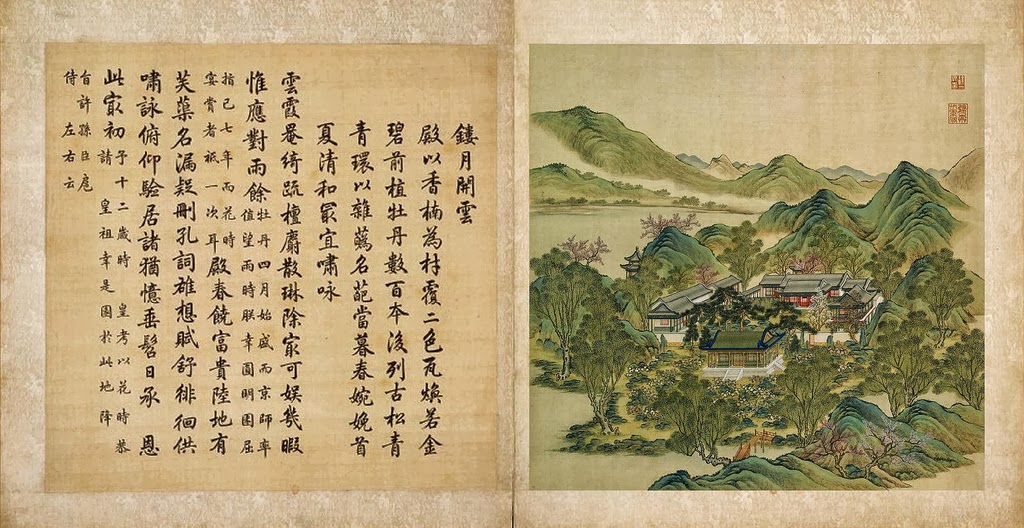 鏤月開雲
殿以香楠為材覆二色瓦煥若金
碧前植牡丹數百本後列古松青
青環以雜蘤名葩當暮春婉娩首
夏清和冣宜嘯咏
雲霞罨綺疏檀麝散琳除冣可娛幾暇
惟應對雨餘牡丹四月始盛而京師率
值望雨時朕幸圓明園屈
指已七年而花時
宴賞者祗一次耳殿春饒富貴陸地有
芙蕖名漏疑刪孔詞雄想賦舒徘徊供
嘯詠俯仰驗居諸猶憶垂髫日承 恩
此冣初予十二歲時 皇考以花時恭
請 皇祖幸是園於此地降
旨許孫臣扈
侍左右云